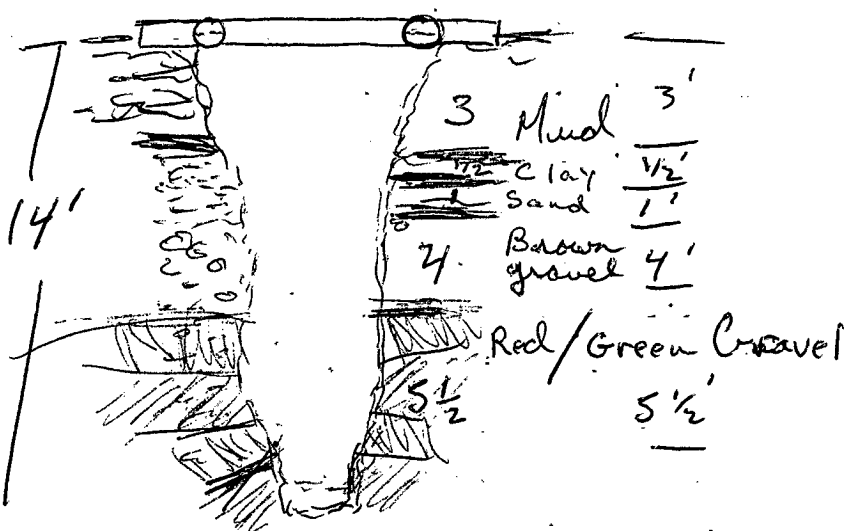 3 Mud 3'
1/2 Clay 1/2'
1 Sand 1'
14'
4. Brown gravel 4'
Red/Green Gravel
5 1/2 5 1/2'